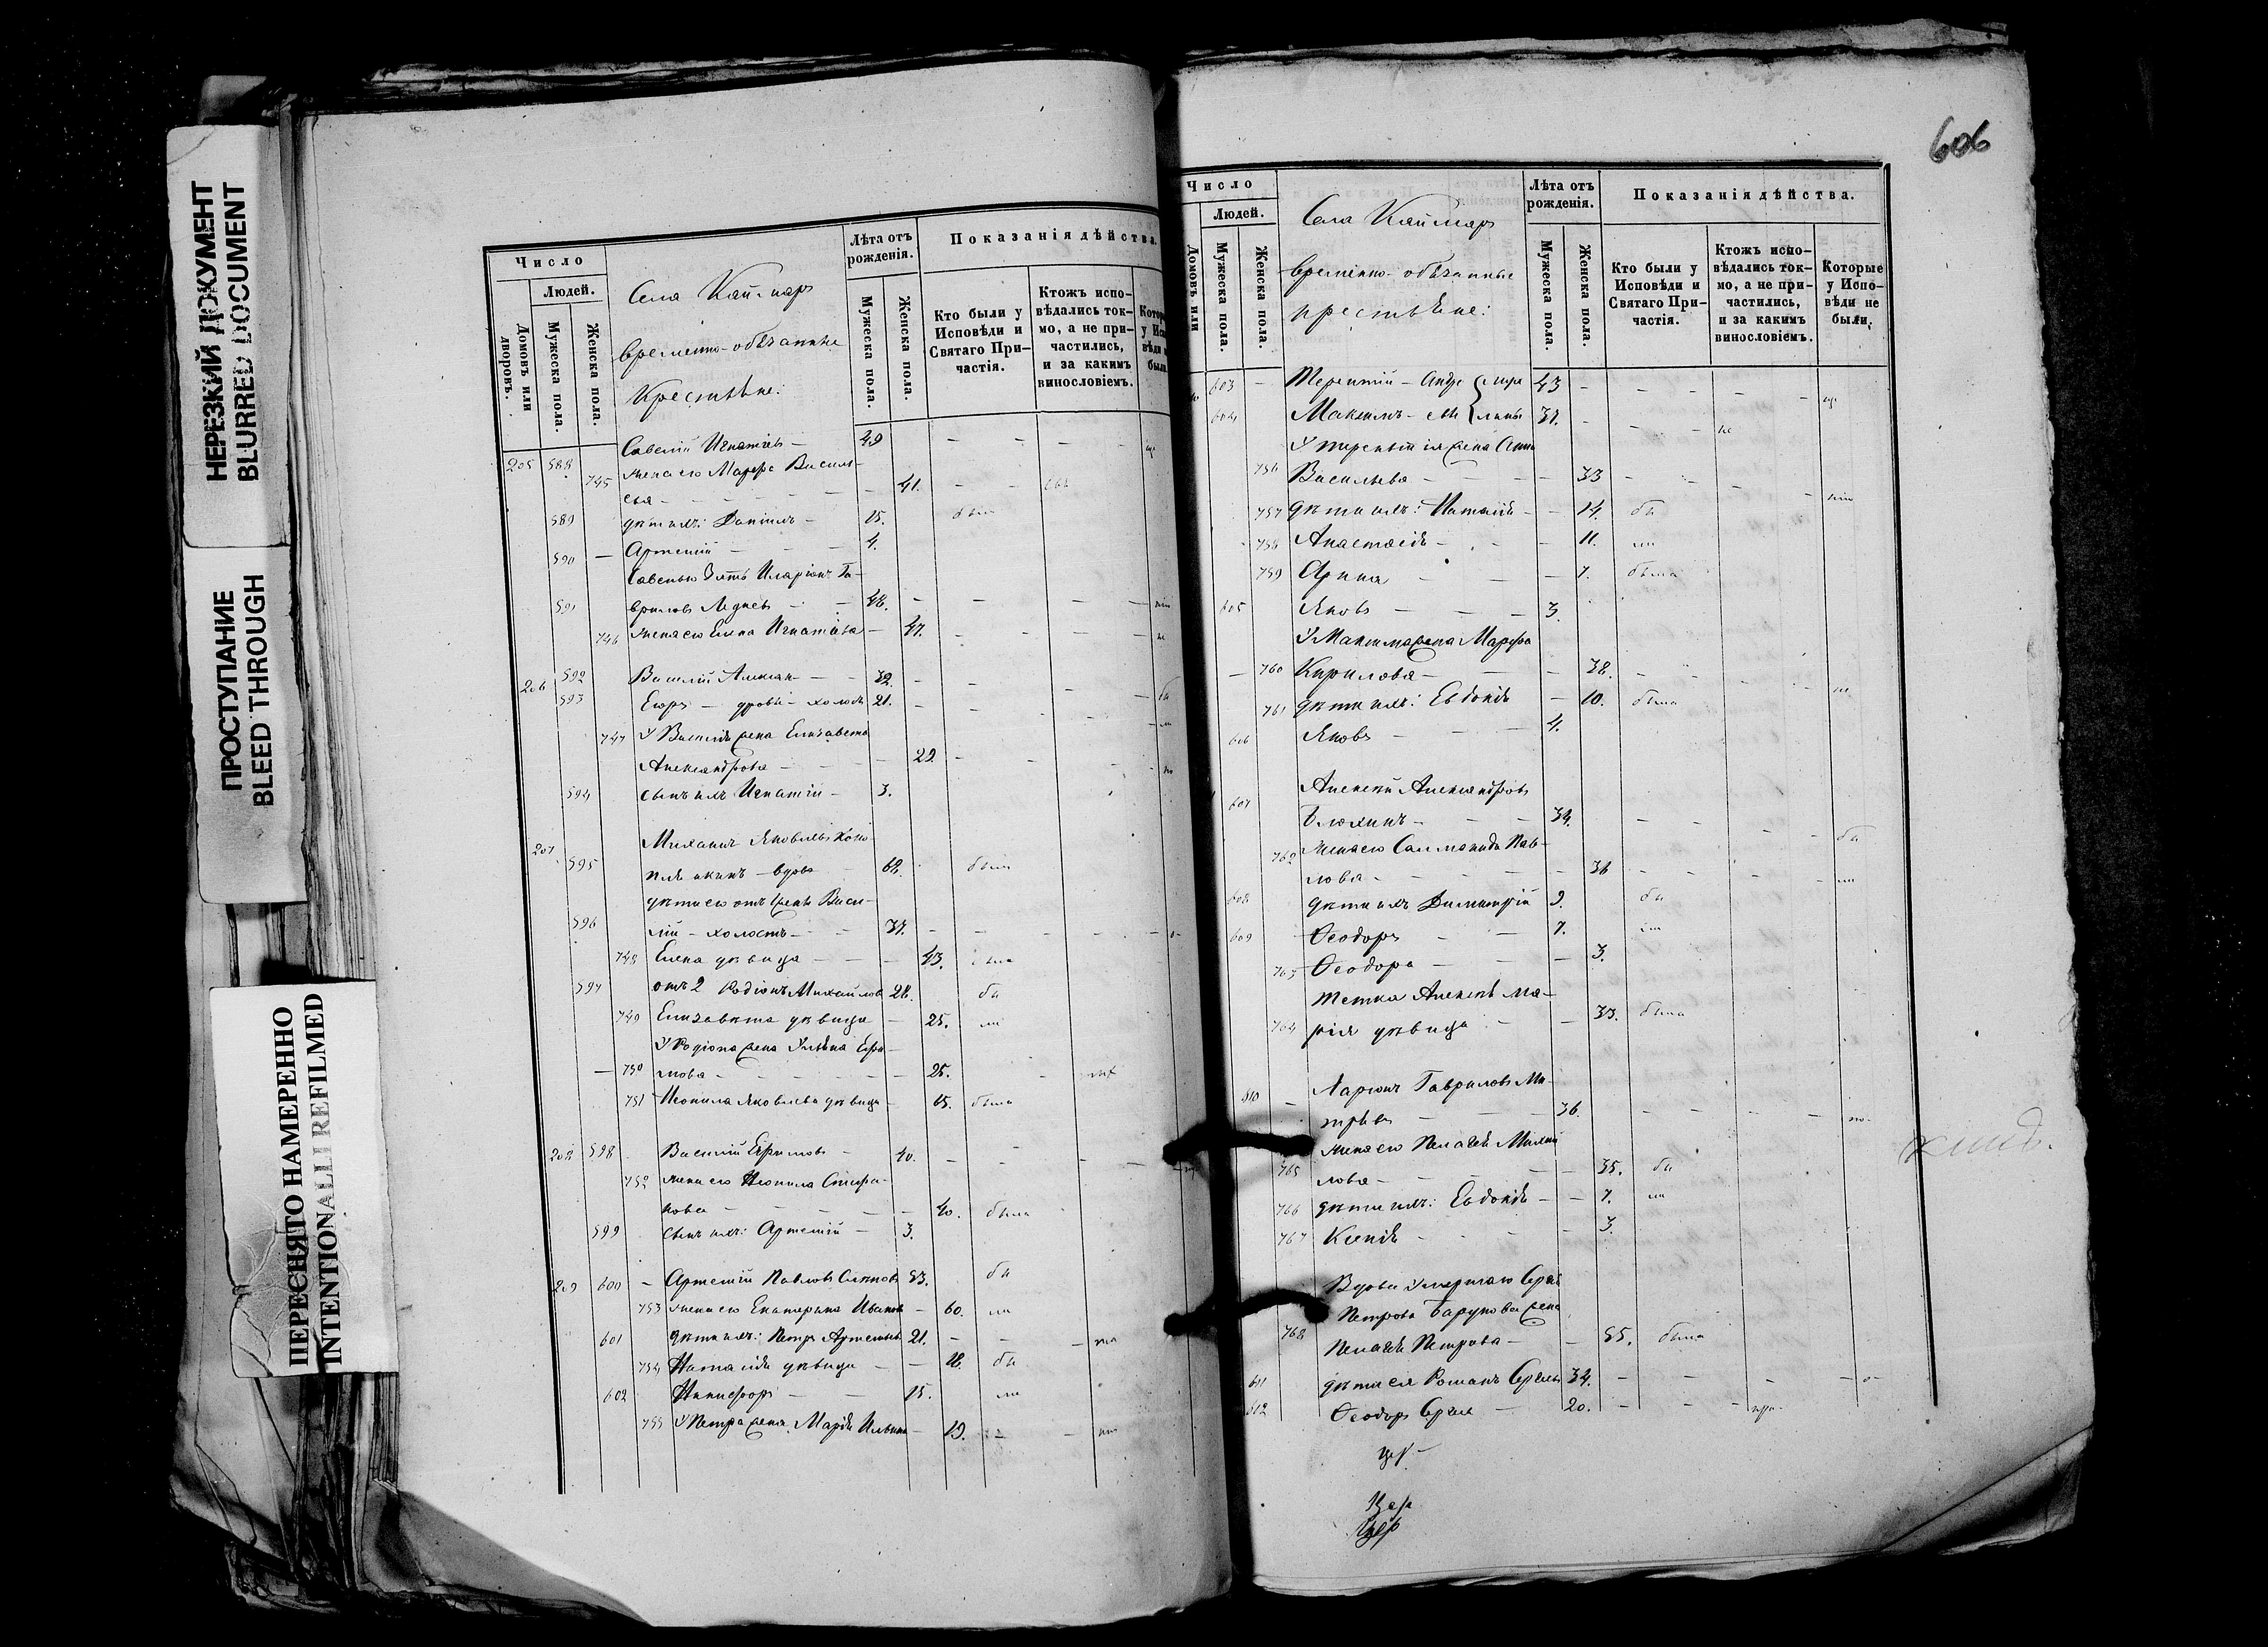 НЕРЕЗКИЙ ДОКУМЕНТ
BLURRED DOCUMENT
ПРОСТУПАНИЕ
BLEED THROUGH
ПЕРЕСНЯТО НАМЕРЕННО
INTENTIONALLI REFILMED
Число
Людей.
Домовъ или дворовъ.
Мужеска пола.
Женска пола.
Села Каймаръ
временно-обязанные
Крестьяне:
Лѣта отъ рожденія.
Мужеска пола.
Женска пола.
Показанія дѣйства.
Кто были у Исповѣди и Святаго Причастія.
Ктожъ исповѣдались токмо, а не причастились, и за какимъ винословіемъ.
205 588 Савелій Игнатьевъ — 49
745 жена его Марѳа Василь-
ева — 41.
589 дѣти ихъ: Даніилъ — 15. были
590 — Артемій — 4.
Савелью зять Иларіонъ Га-
591 вриловъ — 48.
746 жена его Елена Игнатьева — 47.
206 592 Василій Алексан- 32.
593 Егоръ — дровы — холостъ 21.
747 У Василія жена Елизавета
Александрова — 29.
594 сынъ ихъ Игнатій — 3.
207 Михаилъ Яковлевъ Коно-
595 вдовъ 68. были
дѣти его отъ 1 жены Васи-
596 лій — холостъ — 37.
748 Елена дѣвица — 43. была
597 отъ 2 Родіонъ Михайловъ 28. бы
749 Елизавета дѣвица — 25. ли
У Родіона жена Ульяна Ефи-
— 750 мова — 25.
751 Неонила Яковлева дѣвица — 15. была
208 598 Василій Ефимовъ — 40.
752 жена его Неонила Стефа-
нова — 40. была
599 сынъ ихъ: Артемій — 3.
209 600 — Артемій Павловъ 53. бы
753 жена его Екатерина Иванова — 60. ли
601 дѣти ихъ: Петръ Артемьевъ 21.
754 Наталія дѣвица — 18. бы
602 Никифоръ — 15. ли
755 У Петра жена Марія Ильина — 19.
606
Число
Людей.
Домовъ или
Мужеска пола.
Женска пола.
Села Каймаръ
временно-обязанные
крестьяне:
Лѣта отъ рожденія.
Мужеска пола.
Женска пола.
Показанія дѣйства.
Кто были у Исповѣди и Святаго Причастія.
Ктожъ исповѣдались токмо, а не причастились, и за какимъ винословіемъ.
Которые у Исповѣди не были.
603 — Терентій — Андре 43
604 Максимъ — 37.
У Терентія жена Анна
756 Васильева — 33
757 дѣти ихъ: Наталія — 14. бы
758 Анастасія — 11. ли
759 Арина — 7. была
605 Яковъ — 3.
У Максима жена Марѳа
— 760 Кирилова — 38.
761 дѣти ихъ: Евдокія — 10. была
606 Яковъ — 4.
607 Алексѣй Александровъ
Блохинъ — 34.
762 жена его Саломанида Пав-
лова — 36
608 дѣти ихъ Димитрій 9. бы
609 Ѳеодоръ — 7. ли
763 Ѳеодора — 3.
тетка Алексѣя Ма-
764 рія дѣвица — 33. была
610 — Ларіонъ Гавриловъ
36.
жена его Пелагія Михай
765 лова — 35. бы
766 дѣти ихъ: Евдокія — 7. ли
767 Ксенія — 3.
Вдова умершаго Сергѣя
Петрова жена
768 Пелагія Петрова — 55. была
611 дѣти ея Романъ Сергѣевъ 34.
612 Ѳеодоръ Сергѣев — 20.
Цер
Цер